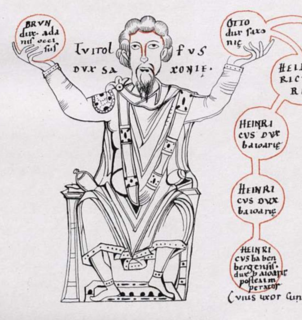 BRVN
dux a danis occisus
LVITOL FVS
DVX SAXONIE.
OTTO
dux saxonie
HEINRICR
HEINRI
CVS DVX
bawarie
HEINRI
CVS DVX
bawarie
HEINRI
CVS baben
bergensis
dux bawarie
postea im
perator
Cuius uxor Cuni